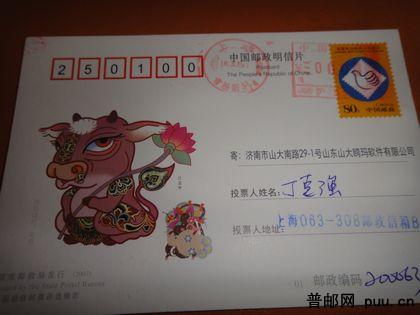 250100
中国邮政明信片
Postcard
The People's Republic of China
80分
中国邮政
寄:济南市山大南路29-1号山东山大鸥玛软件有限公司
投票人姓名: 丁喜强
投票人地址: 上海063-308邮政信箱
发行 (2007)
by the State Postal Bureau
01 邮政编码 200063
普邮网 puu.cn